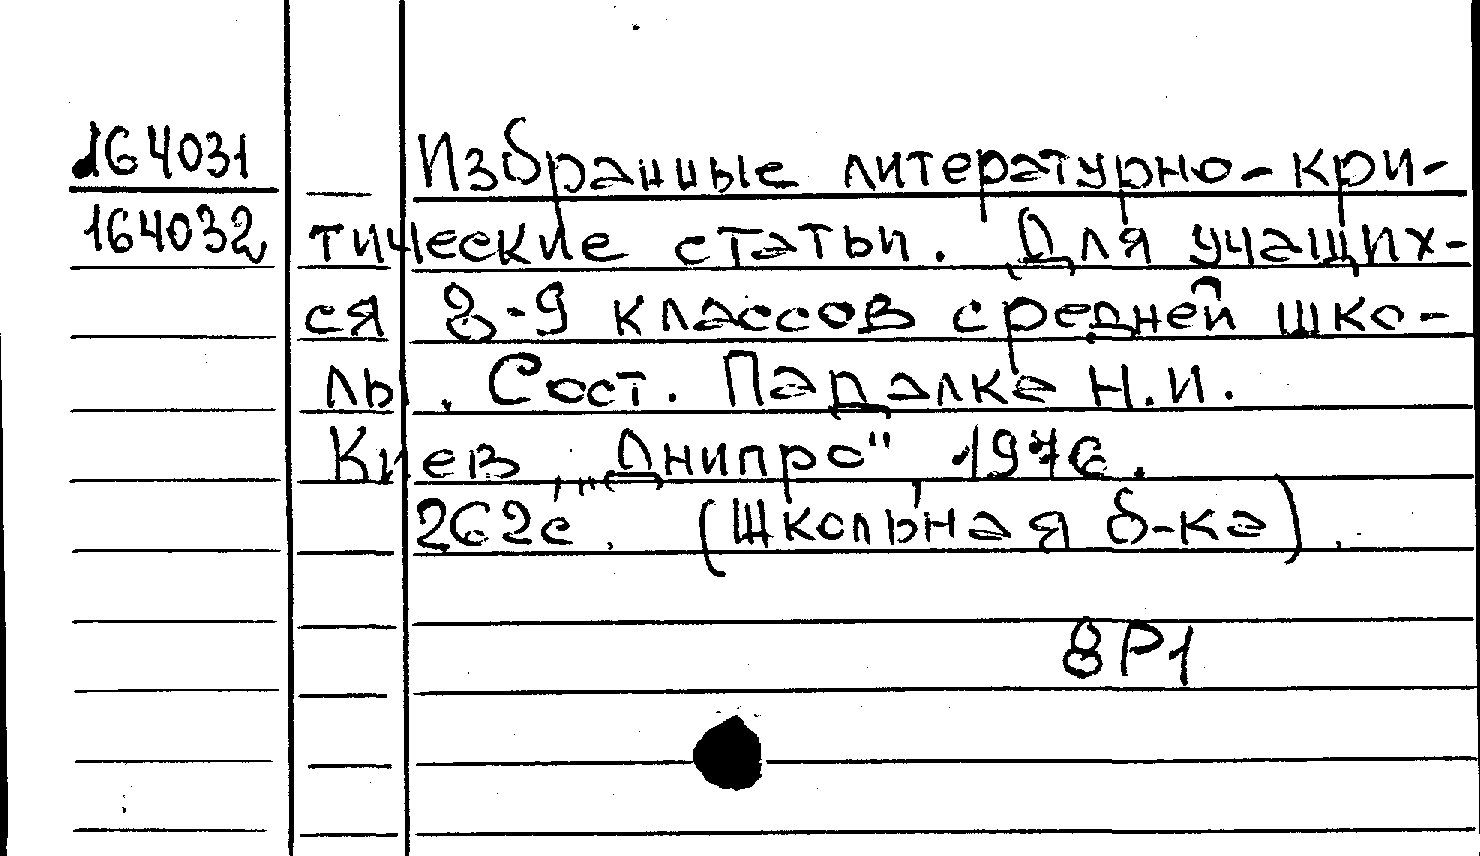 164031 Избранные литературно-кри-
164032 тические статьи. Для учащих-
ся 8-9 классов средней шко-
лы. Сост. Падалка Н.И.
Киев, „Днипро" 1976.
262с. (Школьная б-ка).
8Р1